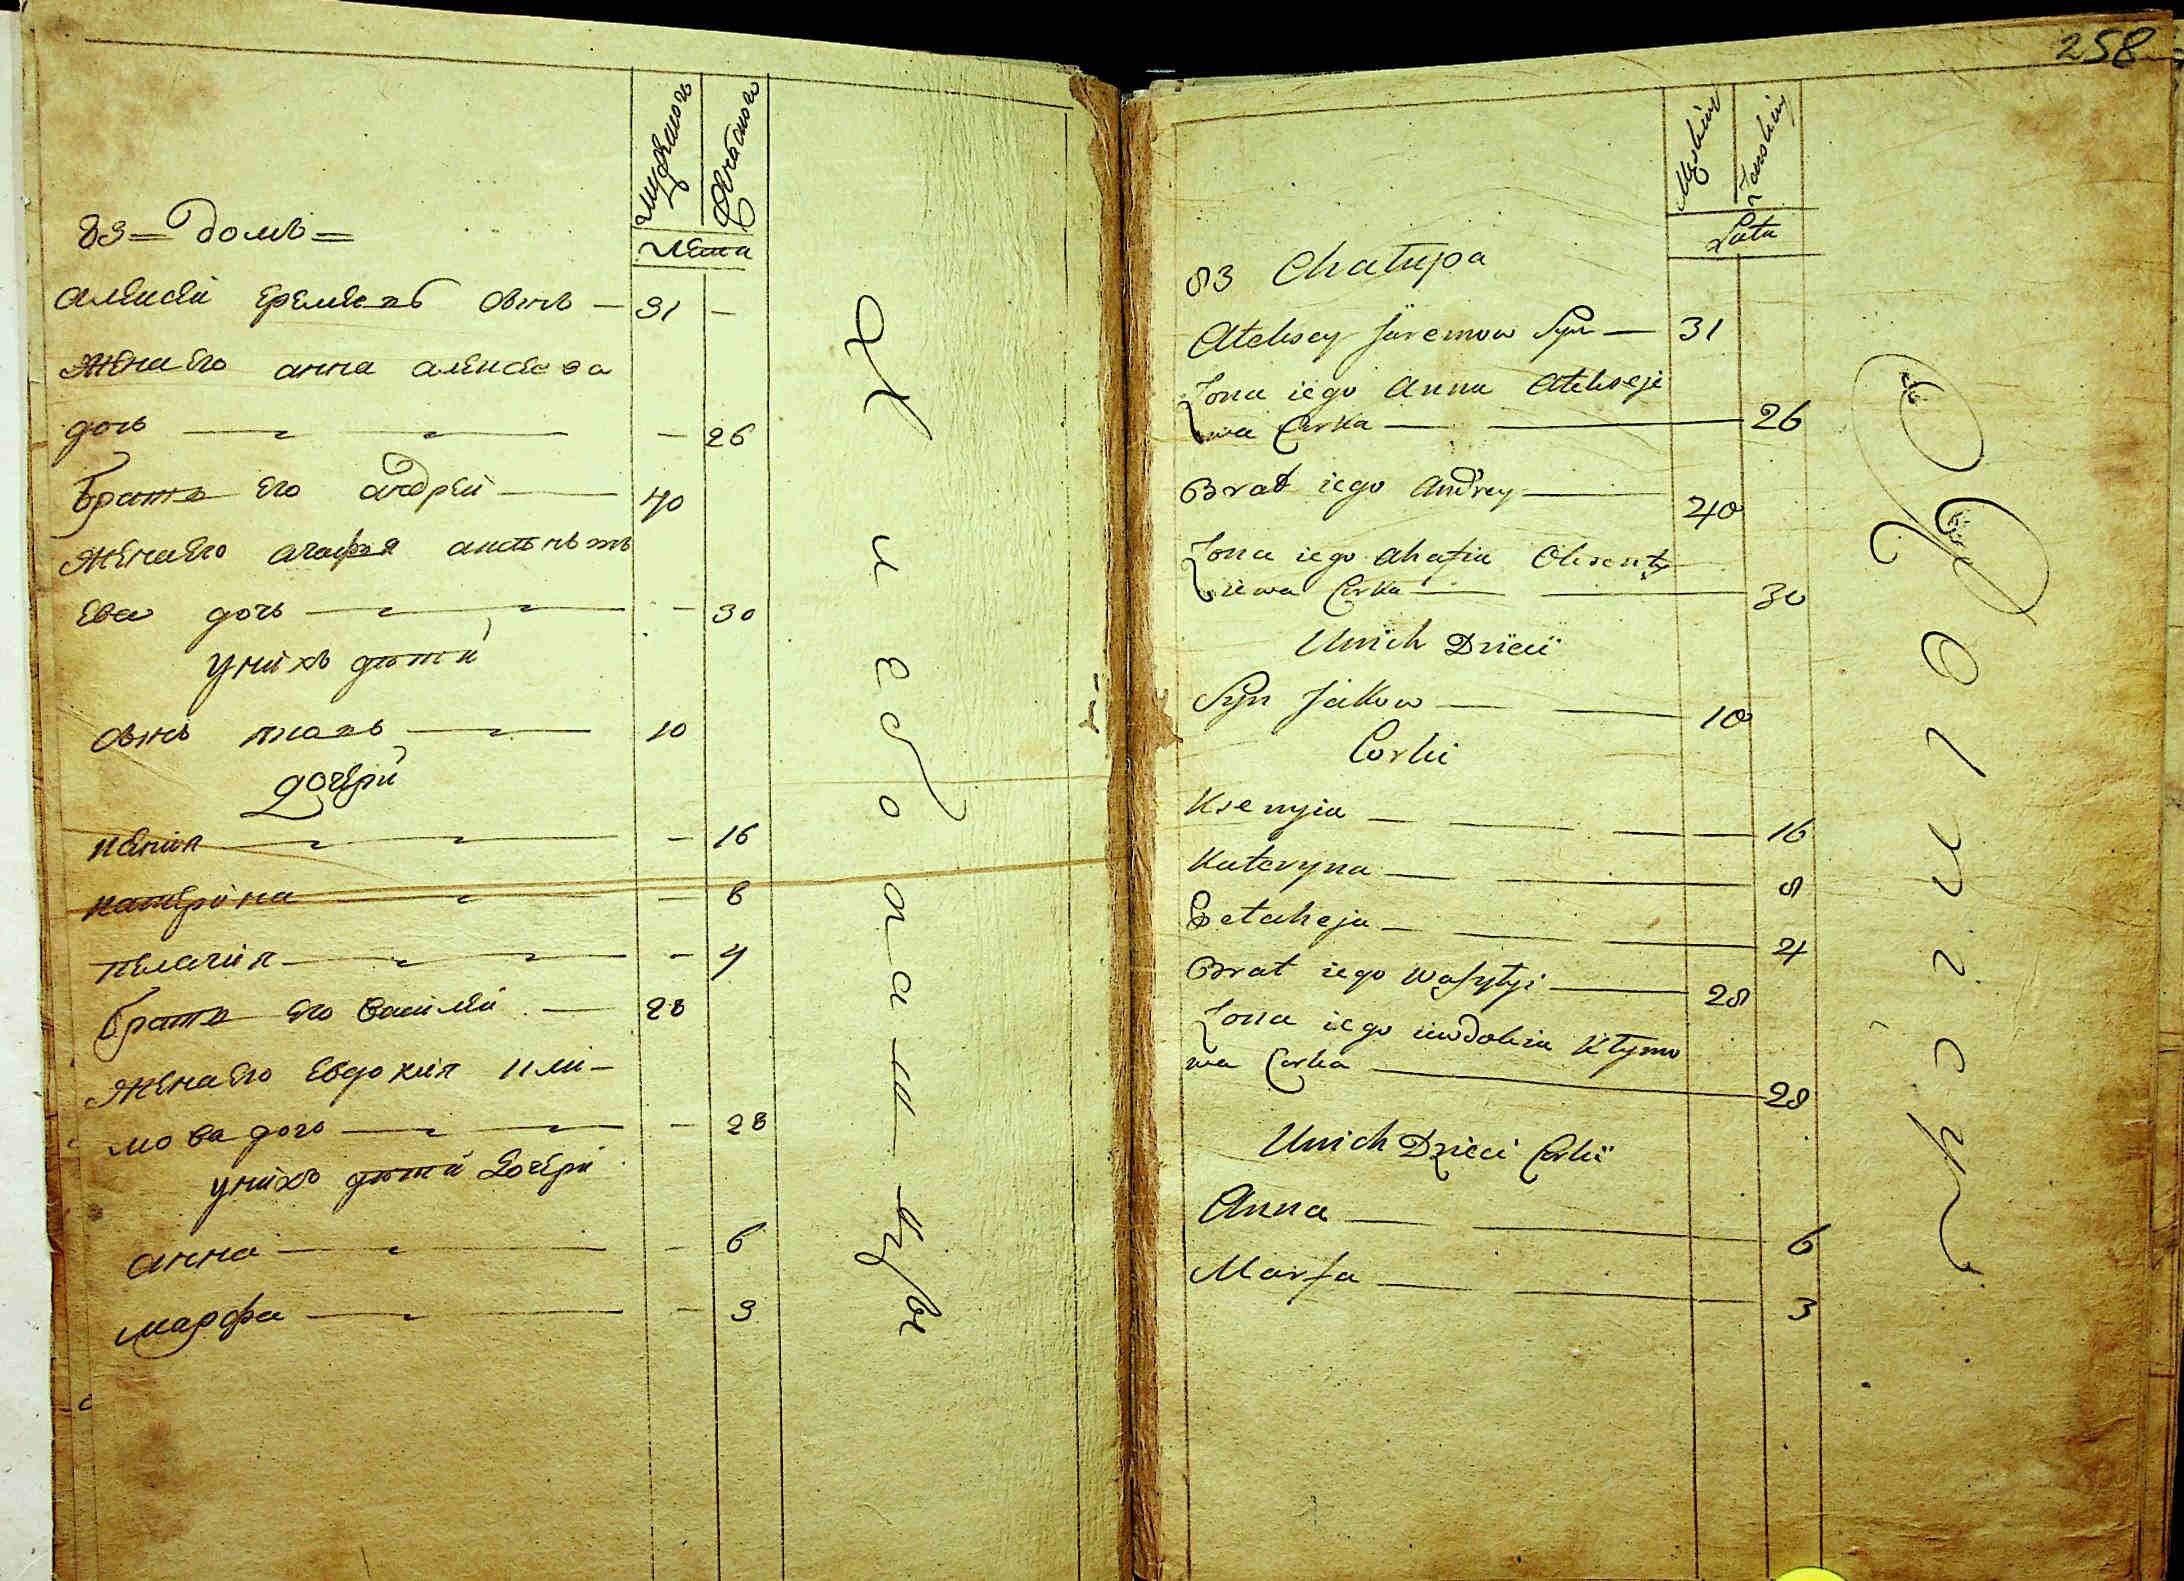 мужеского
женского
лета
83 = домъ =
алексей еремеевъ сынъ — 31 —
жена его анна алексеева
дочь — — — 26
братъ его андрей — 40
жена его агафья
ева дочь — — — 30
у нихъ дети
сынъ яковъ — 10
дочери
— — 16
катерина — — 8
пелагия — — 4
братъ его василей — 28
жена его евдокия кли-
мова дочь — — — 28
у нихъ дети дочери
анна — — 6
марфа — — 3
258
Męskiey
Zenskiey
Lata
83 Chatupa
Ateksey Jaremow Syn — 31
Zona iego Anna Atekseje
wa Corka — — 26
Brat iego Andrey — 40
Zona iego Ahafia
iewa Corka — — 30
Unich Dzieci
Syn Jakow — — 10
Corki
Ksenyia — — — 16
Kateryna — — — 8
Petaheja — — — 4
Brat iego Wasytyi — 28
Zona iego iewdokia Ktymo
wa Corka — 28
Unich Dzieci Corki
Anna — — 6
Marfa — — 3